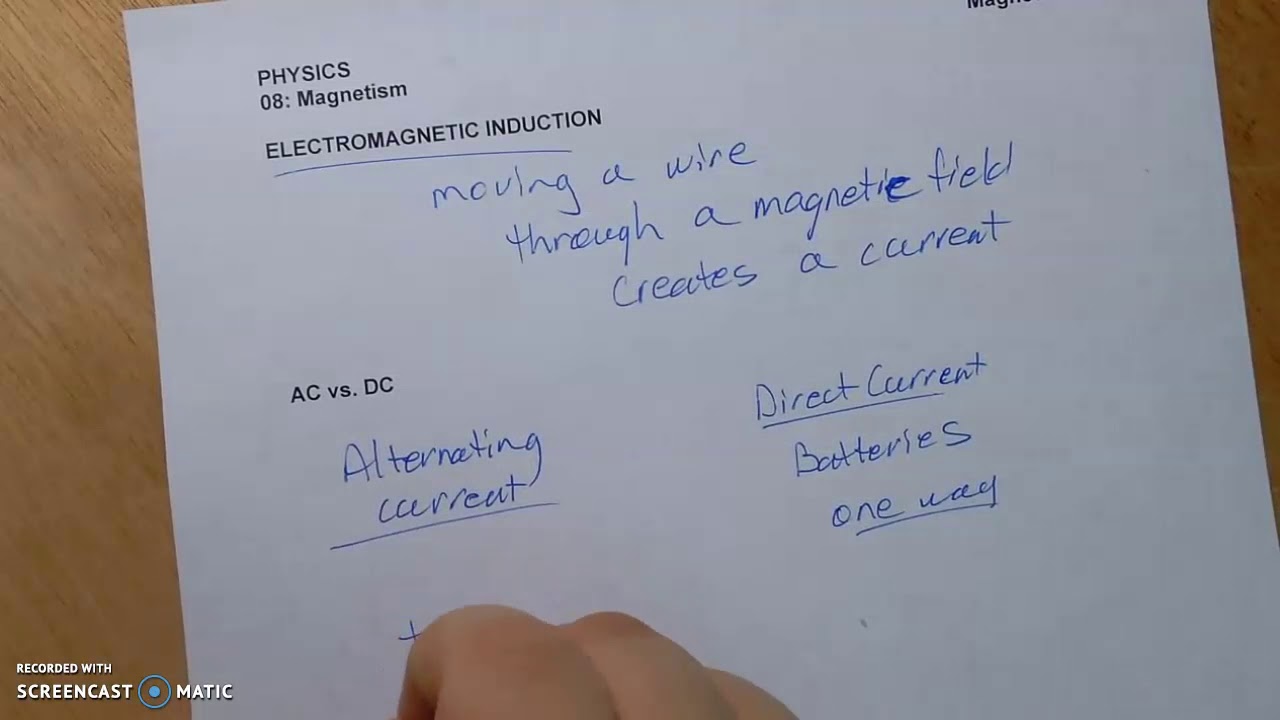 PHYSICS
08: Magnetism
ELECTROMAGNETIC INDUCTION
moving a wire
through a magnetic field
creates a current
AC vs. DC
Alternating
current
Direct Current
Batteries
one way
RECORDED WITH
SCREENCAST MATIC